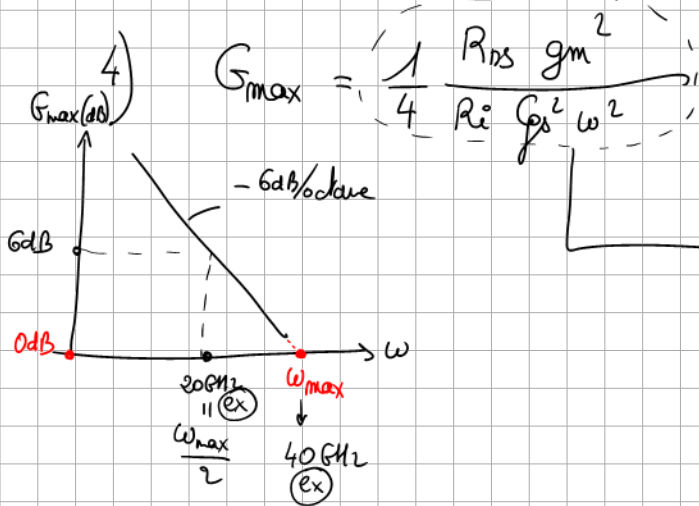 4)
Gmax = 1/4 RDS gm² / Ri CGS² ω²
Gmax(dB)
- 6dB/octave
6dB
0dB
ω
20GHz
ωmax
= ex
ωmax/2
40GHz
ex